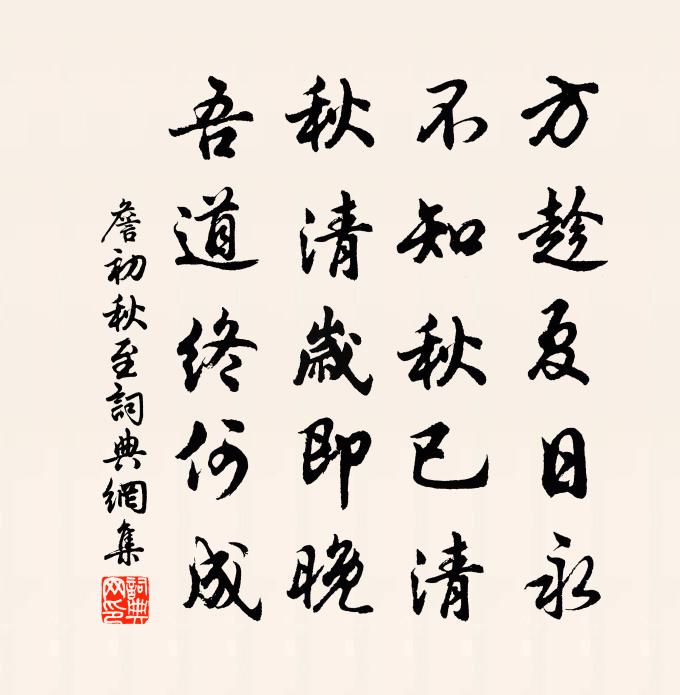 方趁夏日永
不知秋已清
秋清歲即晚
吾道終何成
詹初秋至詞典網集
詞典網印